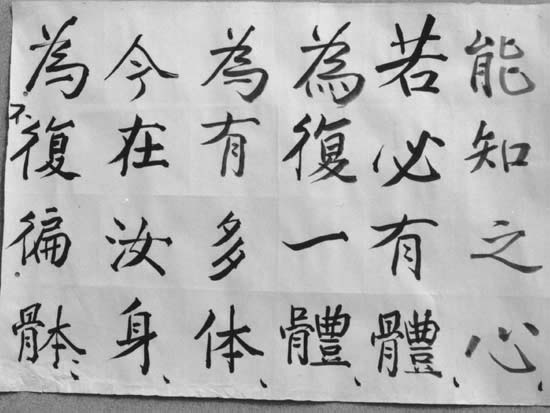 能知之心、
若必有體、
為復一體、
為有多体、
今在汝身、
為不復徧骵、